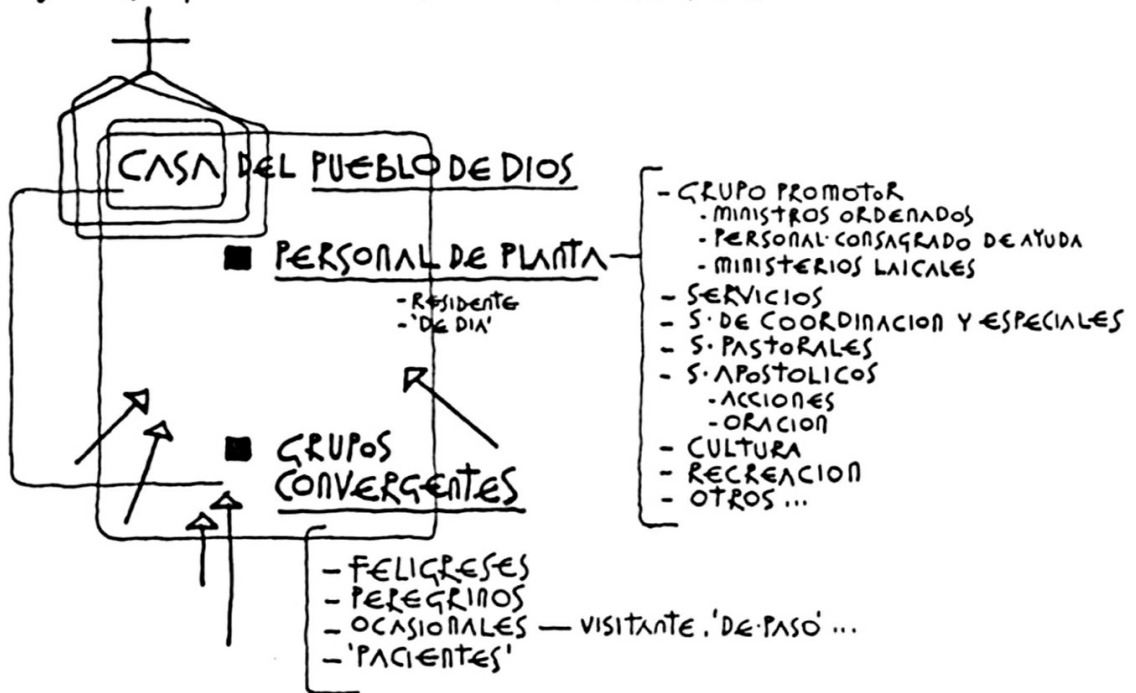 CASA DEL PUEBLO DE DIOS
■ PERSONAL DE PLANTA
- RESIDENTE
- 'DE DIA'
- GRUPO PROMOTOR
- MINISTROS ORDENADOS
- PERSONAL CONSAGRADO DE AYUDA
- MINISTERIOS LAICALES
- SERVICIOS
- S. DE COORDINACION Y ESPECIALES
- S. PASTORALES
- S. APOSTOLICOS
- ACCIONES
- ORACION
- CULTURA
- RECREACION
- OTROS ...
■ GRUPOS
CONVERGENTES
- FELIGRESES
- PEREGRINOS
- OCASIONALES — VISITANTE, 'DE PASO' ...
- 'PACIENTES'